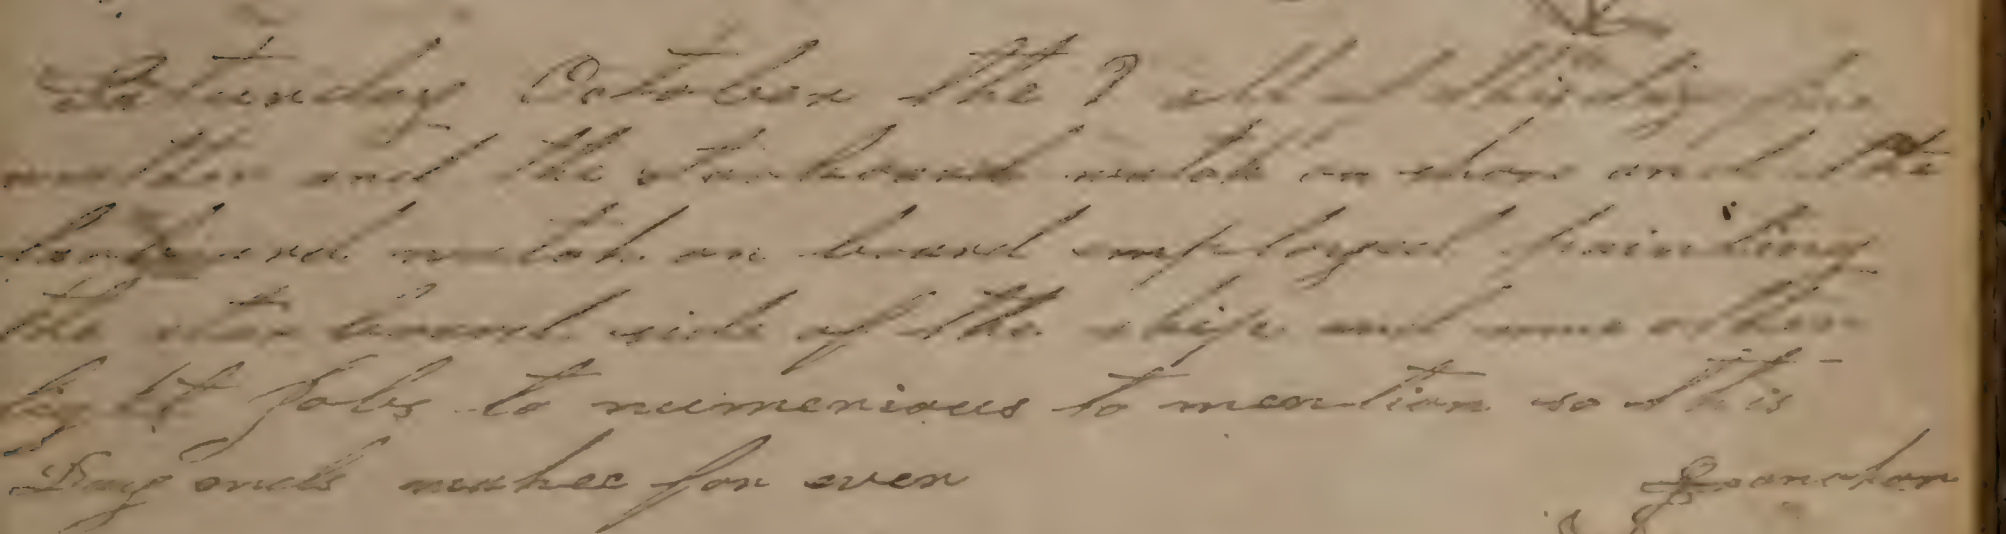 Saturday October the 7 all this day fine
weather and the starboard watch on shore and the
larboard watch on board employed painting
the starboard side of the ship and some other
light Jobs to numerious to mention so this
Day ends makes for ever